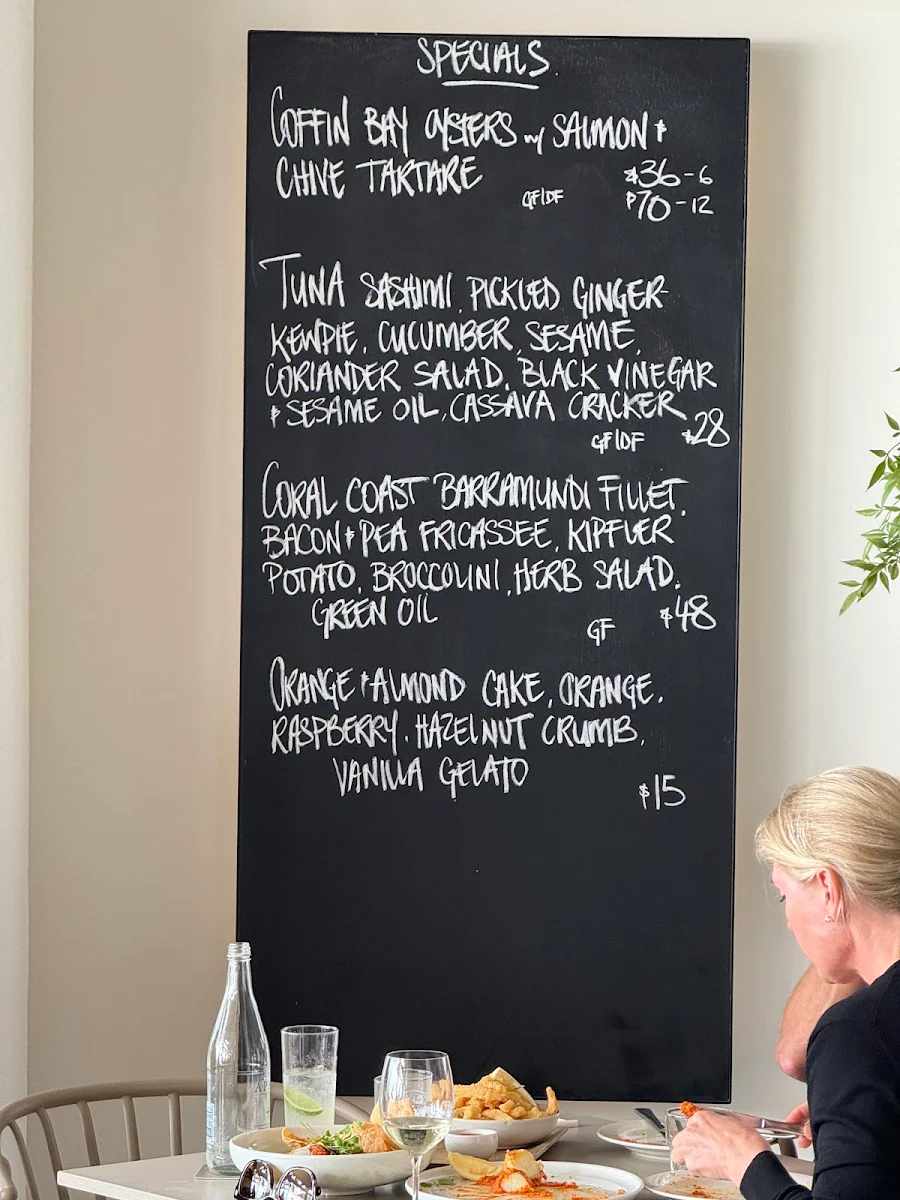 SPECIALS
COFFIN BAY OYSTERS w/ SALMON &
CHIVE TARTARE
GF|DF
$36-6
$70-12
TUNA SASHIMI, PICKLED GINGER
KEWPIE, CUCUMBER, SESAME,
CORIANDER SALAD, BLACK VINEGAR
& SESAME OIL, CASSAVA CRACKER
GF|DF $28
CORAL COAST BARRAMUNDI FILLET,
BACON & PEA FRICASSEE, KIPFLER
POTATO, BROCCOLINI, HERB SALAD,
GREEN OIL
GF $48
ORANGE & ALMOND CAKE, ORANGE,
RASPBERRY, HAZELNUT CRUMB,
VANILLA GELATO
$15